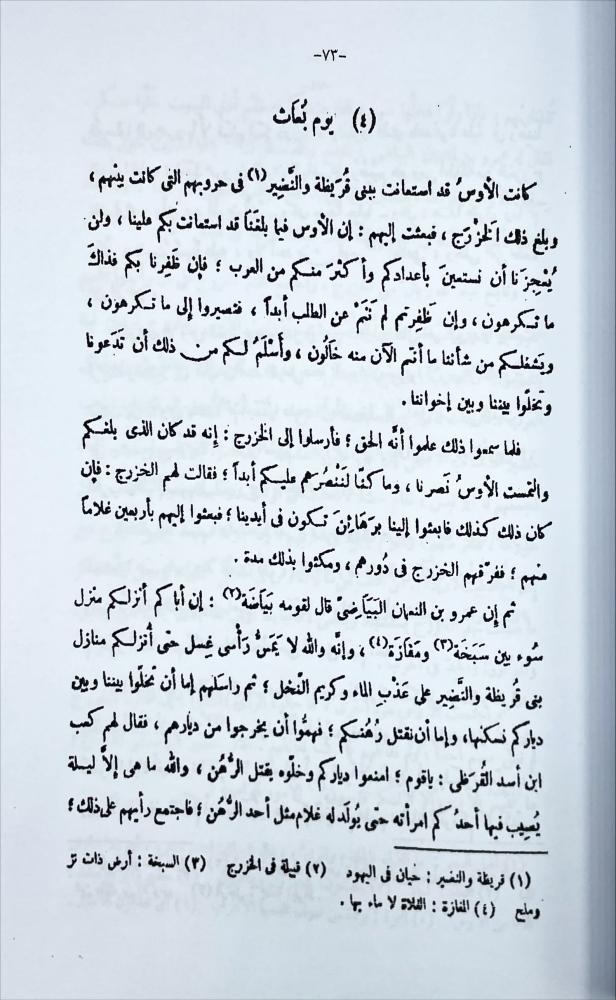 -٧٣-
(٤) يوم بُعَاث
كانت الأوسُ قد استعانت ببنى قُرَيظة والنَّضِير(١) فى حروبهم التى كانت بينهم ،
وبلغ ذلك الخَزْرَج ، فبعثت إليهم : إن الأوس فيما بلغَنَا قد استعانت بكم علينا ، ولن
يُعْجِزَنا أن نستعين بأعدادكم وأكثرَ منكم من العرب ؛ فإن ظفرنا بكم فذاكَ
ما تكرهون ، وإن ظَفِرتم لم نَنَمْ عن الطلب أبداً ، فتصيروا إلى ما تكرهون ،
ويَشغلكم من شأننا ما أنتم الآن منه خَالُون ، وأَسْلَمُ لكم من ذلك أن تَدَعونا
وتخلّوا بيننا وبين إخواننا .
فلما سمعوا ذلك علموا أنَّه الحق ؛ فأرسلوا إلى الخزرج : إنه قد كان الذى بلغكم
والتمست الأوسُ نَصرنا ، وما كنَّا لنَنْصُرَهم عليكم أبداً ؛ فقالت لهم الخزرج : فإن
كان ذلك كذلك فابعثوا إلينا برَهَائنَ تكون فى أيدينا ؛ فبعثوا إليهم بأربعين غلاماً
منهم ؛ ففرّقهم الخزرج فى دُورهم ، ومكثوا بذلك مدة .
ثم إن عمرو بن النعمان البَيَاضِىَّ قال لقومه بَيَاضَة(٢) : إن أباكم أنزلكم منزل
سُوء بين سَبَخَة(٣) ومَفَازَة(٤) ، وإنَّه والله لا يَمَسُّ رَأْسى غِسل حتى أُنزلكم منازل
بنى قُريظة والنَّضِير على عَذْبِ الماء وكريم النّخل ؛ ثم راسلهم إما أن تُخلّوا بيننا وبين
دياركم نسكنها، وإما أن نقتل رُهُنكم ؛ فهمُّوا أن يخرجوا من ديارهم ، فقال لهم كعب
ابن أسد القُرَظى : ياقوم ؛ امنعوا دياركم وخلّوه يقتل الرُّهُن ، والله ما هى إلاَّ ليلة
يُصِيب فيها أحدُكم امرأته حتى يُولَد له غلام مثل أحد الرُّهُن ؛ فاجتمع رأيهم على ذلك ؛
(١) قريظة والنضير : حيان فى اليهود (٢) قبيلة فى الخزرج (٣) السبخة : أرض ذات نز
وملح (٤) المفازة : الفلاة لا ماء بها .